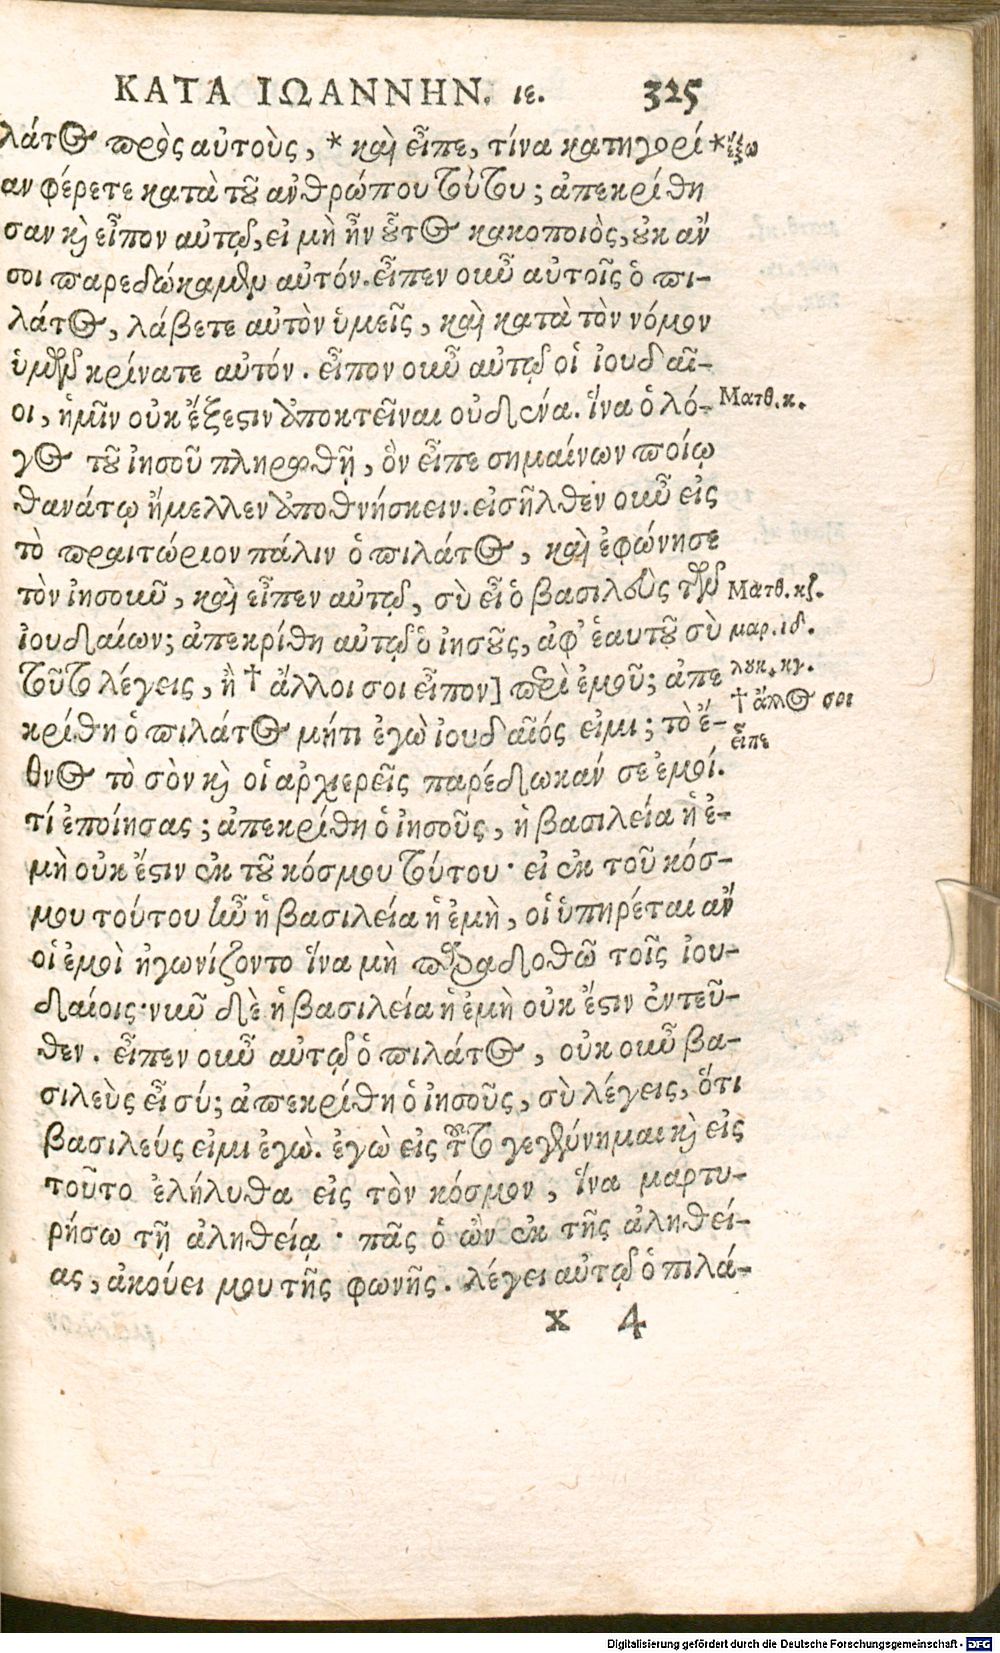 ΚΑΤΑ ΙΩΑΝΝΗΝ. ιε. 325
λάτος πρὸς αὐτοὺς, * καὶ εἶπε, τίνα κατηγορί * ἔξω
αν φέρετε κατὰ τοῦ ἀνθρώπου τούτου; ἀπεκρίθη
σαν καὶ εἶπον αὐτῷ, εἰ μὴ ἦν οὗτος κακοποιὸς, οὐκ ἄν
σοι παρεδώκαμεν αὐτόν. εἶπεν οὖν αὐτοῖς ὁ πι-
λάτος, λάβετε αὐτὸν ὑμεῖς, καὶ κατὰ τὸν νόμον
ὑμῶν κρίνατε αὐτόν. εἶπον οὖν αὐτῷ οἱ ἰουδαῖ-
οι, ἡμῖν οὐκ ἔξεστιν ἀποκτεῖναι οὐδένα. ἵνα ὁ λό- Ματθ. κ.
γος τοῦ ἰησοῦ πληρωθῇ, ὃν εἶπε σημαίνων ποίῳ
θανάτῳ ἤμελλεν ἀποθνήσκειν. εἰσῆλθεν οὖν εἰς
τὸ πραιτώριον πάλιν ὁ πιλάτος, καὶ ἐφώνησε
τὸν ἰησοῦν, καὶ εἶπεν αὐτῷ, σὺ εἶ ὁ βασιλεὺς τῶν Ματθ. κζ.
ἰουδαίων; ἀπεκρίθη αὐτῷ ὁ ἰησοῦς, ἀφ' ἑαυτοῦ σὺ μαρ. ιδ.
τοῦτο λέγεις, ἢ † ἄλλοι σοι εἶπον] περὶ ἐμοῦ; ἀπε λουκ. κγ.
κρίθη ὁ πιλάτος μήτι ἐγὼ ἰουδαῖός εἰμι; τὸ ἔ- † ἄλλος σοι
θνος τὸ σὸν καὶ οἱ ἀρχιερεῖς παρέδωκάν σε ἐμοί. εἶπε
τί ἐποίησας; ἀπεκρίθη ὁ ἰησοῦς, ἡ βασιλεία ἡ ἐ-
μὴ οὐκ ἔστιν ἐκ τοῦ κόσμου τούτου· εἰ ἐκ τοῦ κόσ-
μου τούτου ἦν ἡ βασιλεία ἡ ἐμὴ, οἱ ὑπηρέται ἄν
οἱ ἐμοὶ ἠγωνίζοντο ἵνα μὴ παραδοθῶ τοῖς ἰου-
δαίοις· νῦν δὲ ἡ βασιλεία ἡ ἐμὴ οὐκ ἔστιν ἐντεῦ-
θεν. εἶπεν οὖν αὐτῷ ὁ πιλάτος, οὐκ οὖν βα-
σιλεὺς εἶ σύ; ἀπεκρίθη ὁ ἰησοῦς, σὺ λέγεις, ὅτι
βασιλεύς εἰμι ἐγώ. ἐγὼ εἰς τοῦτο γεγέννημαι καὶ εἰς
τοῦτο ἐλήλυθα εἰς τὸν κόσμον, ἵνα μαρτυ-
ρήσω τῇ ἀληθείᾳ · πᾶς ὁ ὢν ἐκ τῆς ἀληθεί-
ας, ἀκούει μου τῆς φωνῆς. λέγει αὐτῷ ὁ πιλά-
x 4
Digitalisierung gefördert durch die Deutsche Forschungsgemeinschaft - DFG